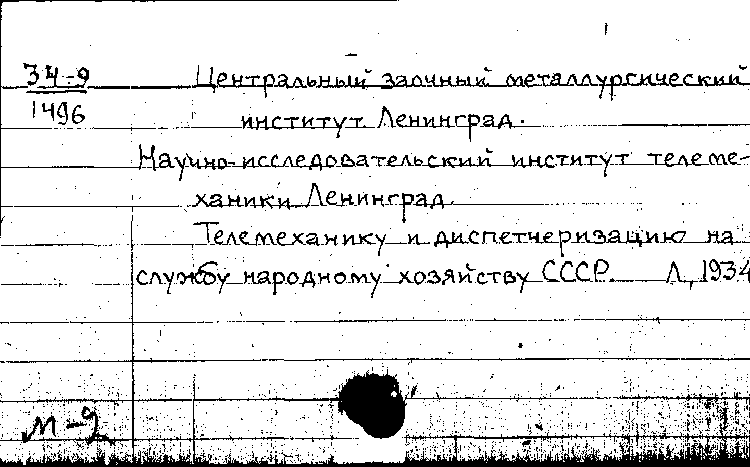 34-9
1496
Центральный заочный металлургический
институт. Ленинград.
Научно-исследовательский институт телеме-
ханики. Ленинград.
Телемеханику и диспетчеризацию на
службу народному хозяйству СССР. Л, 1934
м-9